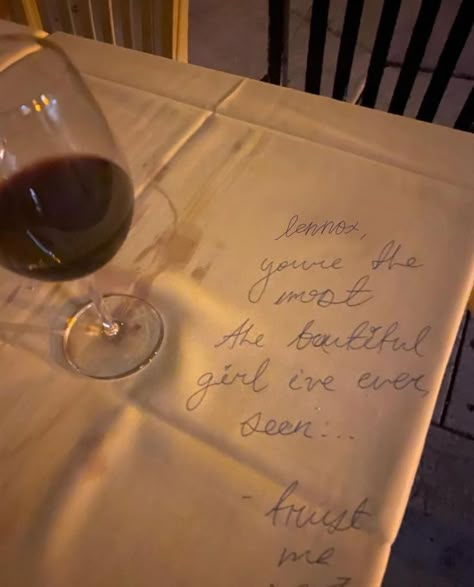 lennox,
you're the
most
the beautiful
girl i've ever
seen...
- trust
me